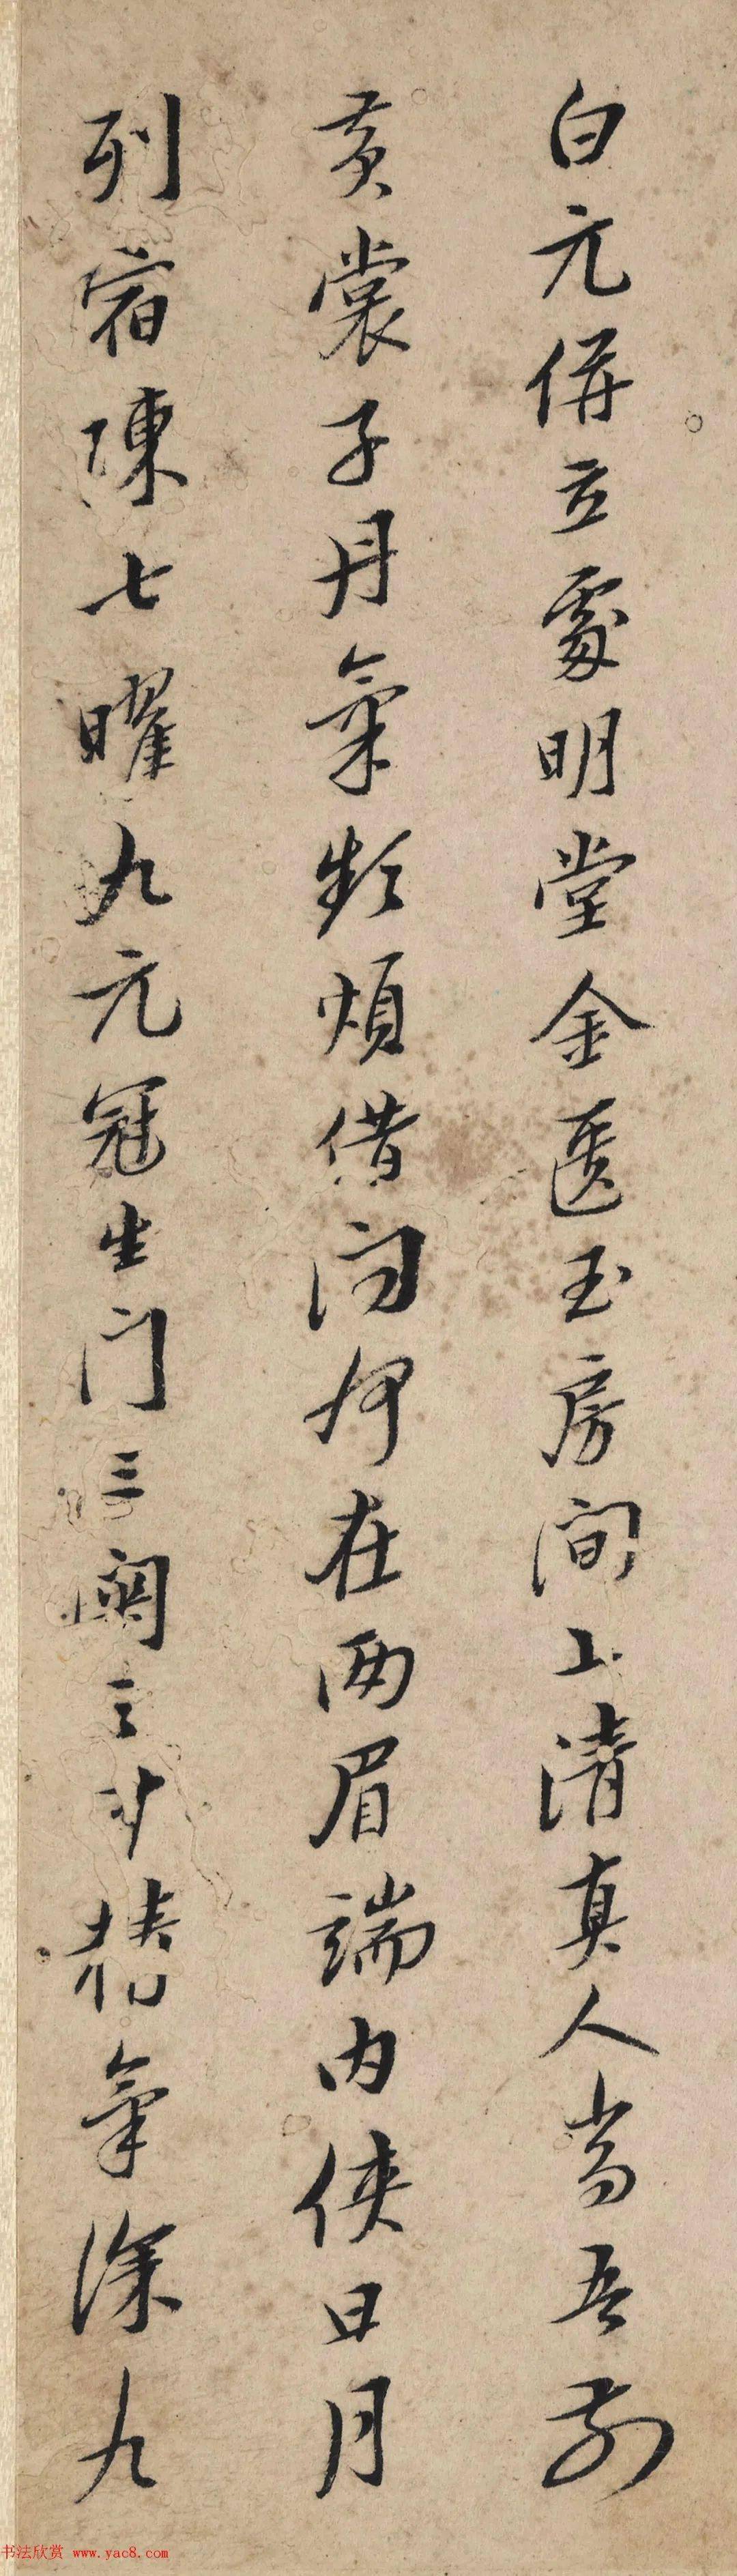 白元併立處明堂金匱玉房間上清真人當吾前
黃裳子丹氣數煩借问何在两眉端内俠日月
列宿陳七曜九元冠生门三關之中精氣深九
书法欣赏 www.yac8.com